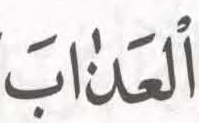 الْعَذٰابَ